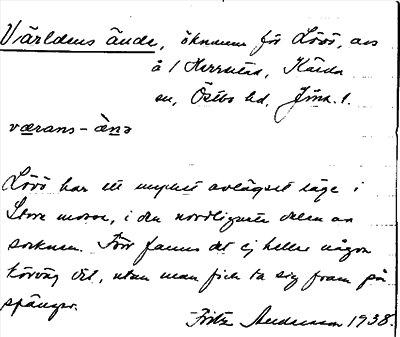 Världens ände, öknamn för Lövö, avs
å 1 Herrestad, Kärda
sn, Östbo hd, Jönk. l.
værans-ènə
Lövö har ett mycket avlägset läge i
Store mosse, i den nordligaste delen av
socknen. Förr fanns det ej heller någon
körväg dit, utan man fick ta sig fram på
spänger.
Fritz Andersson 1938.